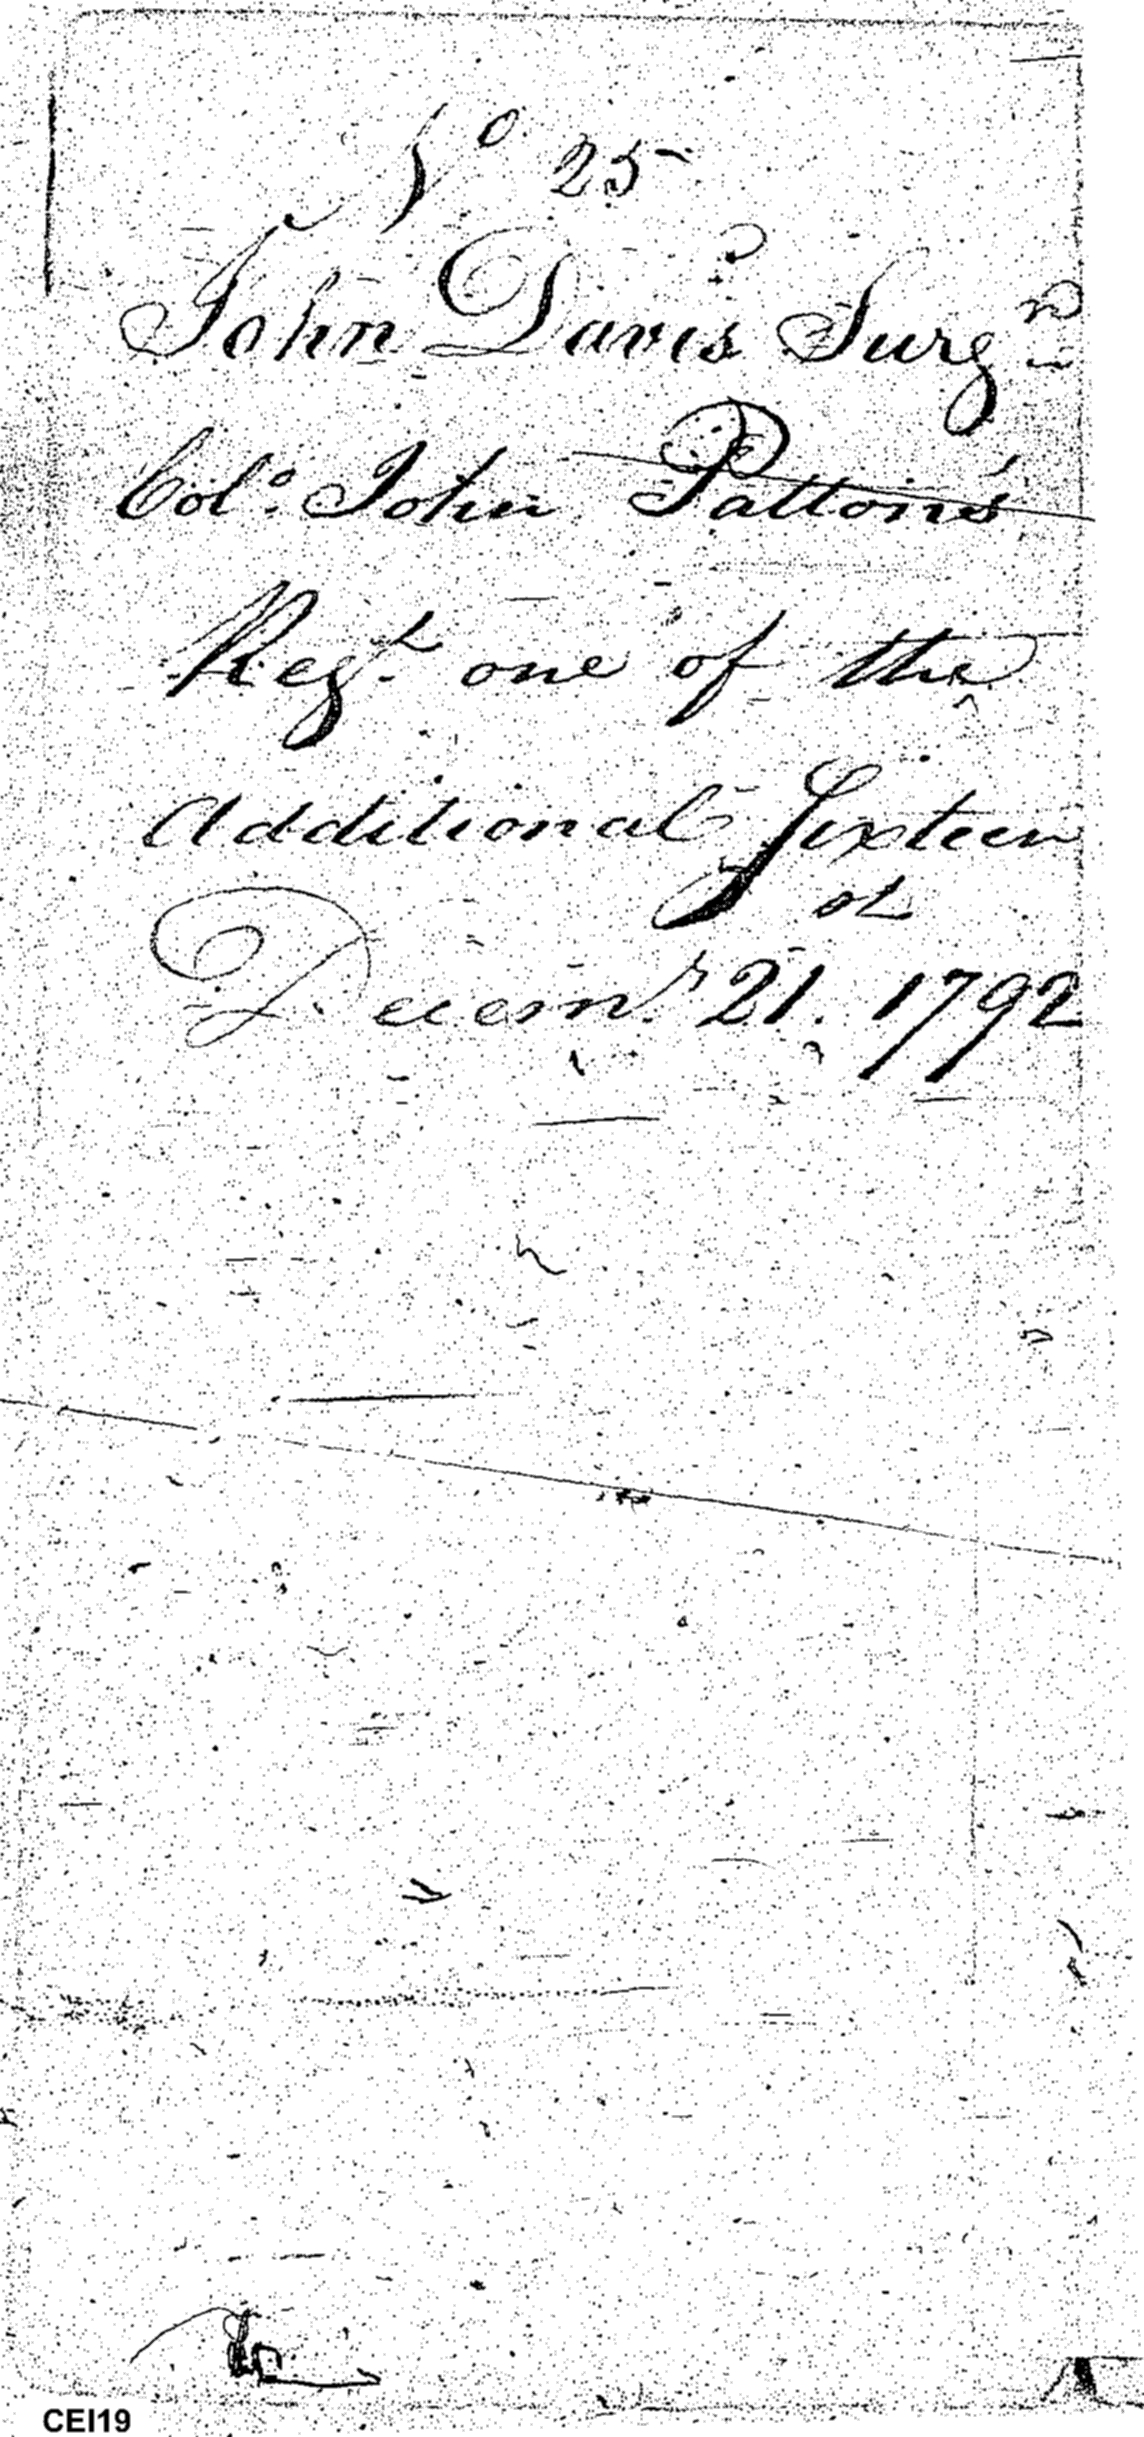 No 25
John Davis Surgn
Colo. John Patton's
Regt. one of the
Additional Sixteen
Decemr. 21st. 1792
CEI19